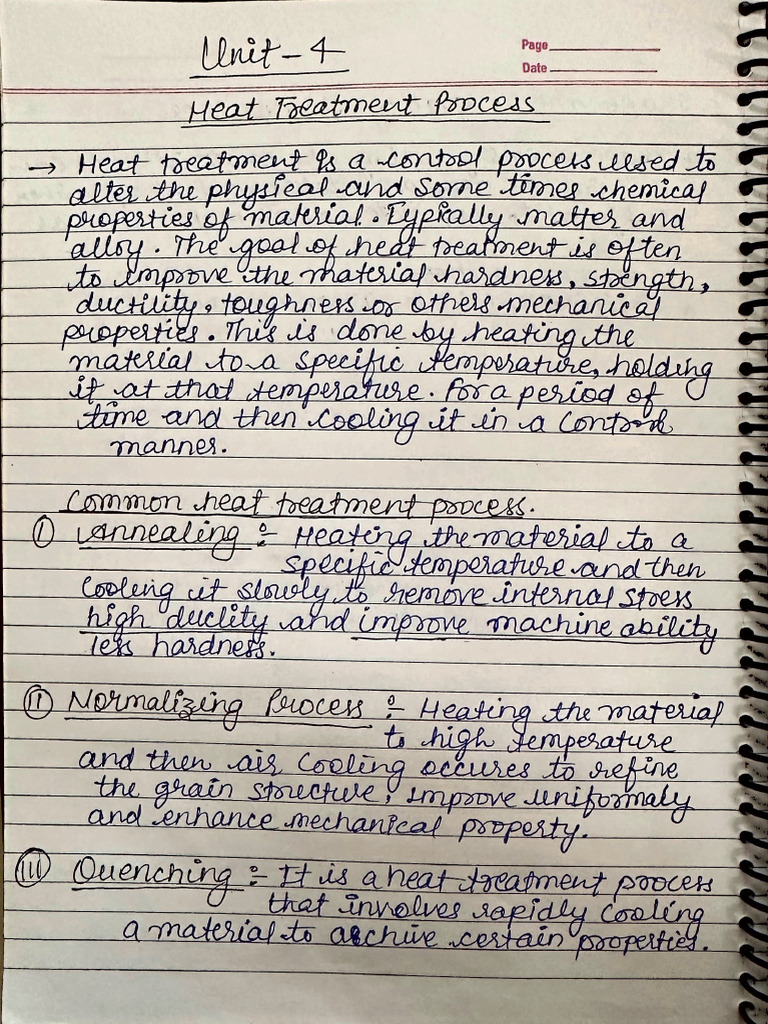 Unit - 4
Page
Date
Heat Treatment Process
→ Heat treatment is a control process used to
alter the physical and Some times chemical
properties of material. Typically matter and
alloy. The goal of heat treatment is often
to improve the material hardness, strength,
ductility, toughness or others mechanical
properties. This is done by heating the
material to a specific temperature, holding
it at that temperature. For a period of
time and then cooling it in a control
manner.
Common heat treatment process.
(I) Annealing :- Heating the material to a
specific temperature and then
Cooling it slowly to remove internal stress
high duclity and improve machine ability
less hardness.
(II) Normalizing Process :- Heating the material
to high temperature
and then air Cooling occures to refine
the grain structure, improve uniformaly
and enhance mechanical property.
(III) Quenching :- It is a heat treatment process
that involves rapidly Cooling
a material to archive certain properties.